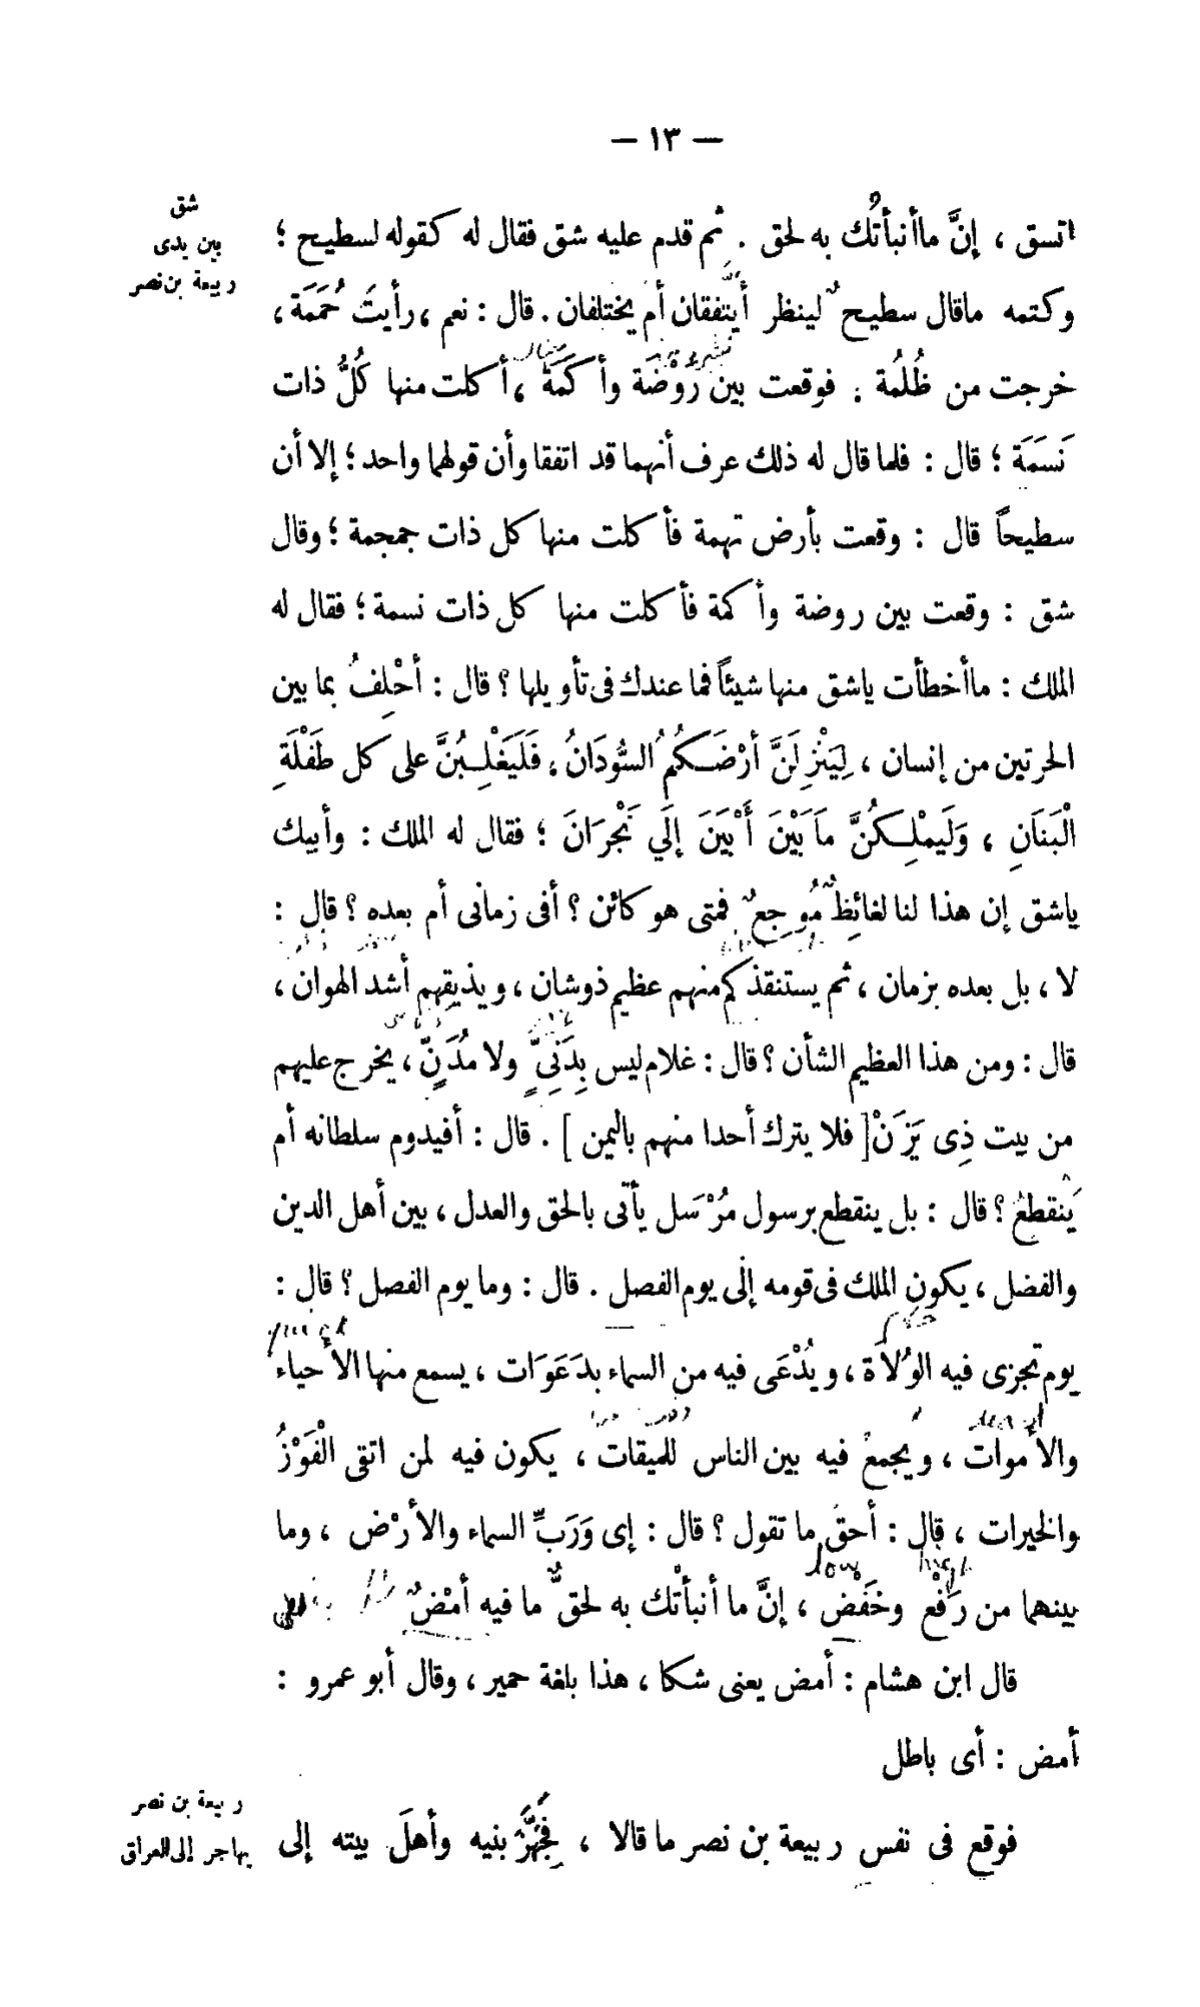 — ١٣ —
شق
بين يدى
ربيعة بن نصر
اتسق ، إنَّ ما أنبأتُك به لحق . ثم قدم عليه شق فقال له كقوله لسطيح ؛
وكتمه ماقال سطيح لينظر أيتَّفقان أم يختلفان . قال : نعم ، رأيتَ حُمَمَة ،
خرجت من ظُلُمة . فوقعت بين رَوْضَة وأكَمَة ، أكلت منها كُلُّ ذات
نَسَمَة ؛ قال : فلما قال له ذلك عرف أنهما قد اتفقا وأن قولهما واحد ؛ إلا أن
سطيحاً قال : وقعت بأرض تهمة فأكلت منها كل ذات جمجمة ؛ وقال
شق : وقعت بين روضة وأكمة فأكلت منها كل ذات نسمة ؛ فقال له
الملك : ما أخطأت ياشق منها شيئاً فما عندك فى تأويلها ؟ قال : أحْلِفُ بما بين
الحرتين من إنسان ، لَيَنْزِلَنَّ أرْضَكُمُ السُّودَانُ ، فَلَيَغْلِبُنَّ على كل طَفْلَةِ
الْبَنَانِ ، وَلَيمْلِكُنَّ مَا بَيْنَ أَبْيَنَ إلَي نَجْرَانَ ؛ فقال له الملك : وأبيك
ياشق إن هذا لنا لغائِظٌ مُوجِعٌ فمتى هو كائن ؟ أفى زمانى أم بعده ؟ قال :
لا ، بل بعده بزمان ، ثم يستنقذكم منهم عظيم ذوشان ، ويذيقهم أشد الهوان ،
قال : ومن هذا العظيم الشأن ؟ قال : غلام ليس بِدَنِىٍّ ولا مُدَنٍّ ، يخرج عليهم
من بيت ذِى يَزَنْ [ فلا يترك أحدا منهم باليمن ] . قال : أفيدوم سلطانه أم
يَنقطعُ ؟ قال : بل ينقطع برسول مُرْسَل يأتى بالحق والعدل ، بين أهل الدين
والفضل ، يكون الملك فى قومه إلى يوم الفصل . قال : وما يوم الفصل ؟ قال :
يوم تجزى فيه الوُلاَة ، ويُدْعَى فيه من السماء بدَعَوَات ، يسمع منها الأحياء
والأموات ، ويجمعُ فيه بين الناس للميقات ، يكون فيه لمن اتقى الْفَوْزُ
والخيرات ، قال : أحق ما تقول ؟ قال : إى وَرَبِّ السماء والأرْض ، وما
بينهما من رَفْع وخَفْض ، إنَّ ما أنبأتْك به لحقٌّ ما فيه أمْضٌ
قال ابن هشام : أمض يعنى شكا ، هذا بلغة حمير ، وقال أبو عمرو :
أمض : أى باطل
ربيعة بن نصر
يهاجر إلى العراق
فوقع فى نفس ربيعة بن نصر ما قالا ، فَجَهَّزَ بنيه وأهلَ بيته إلى